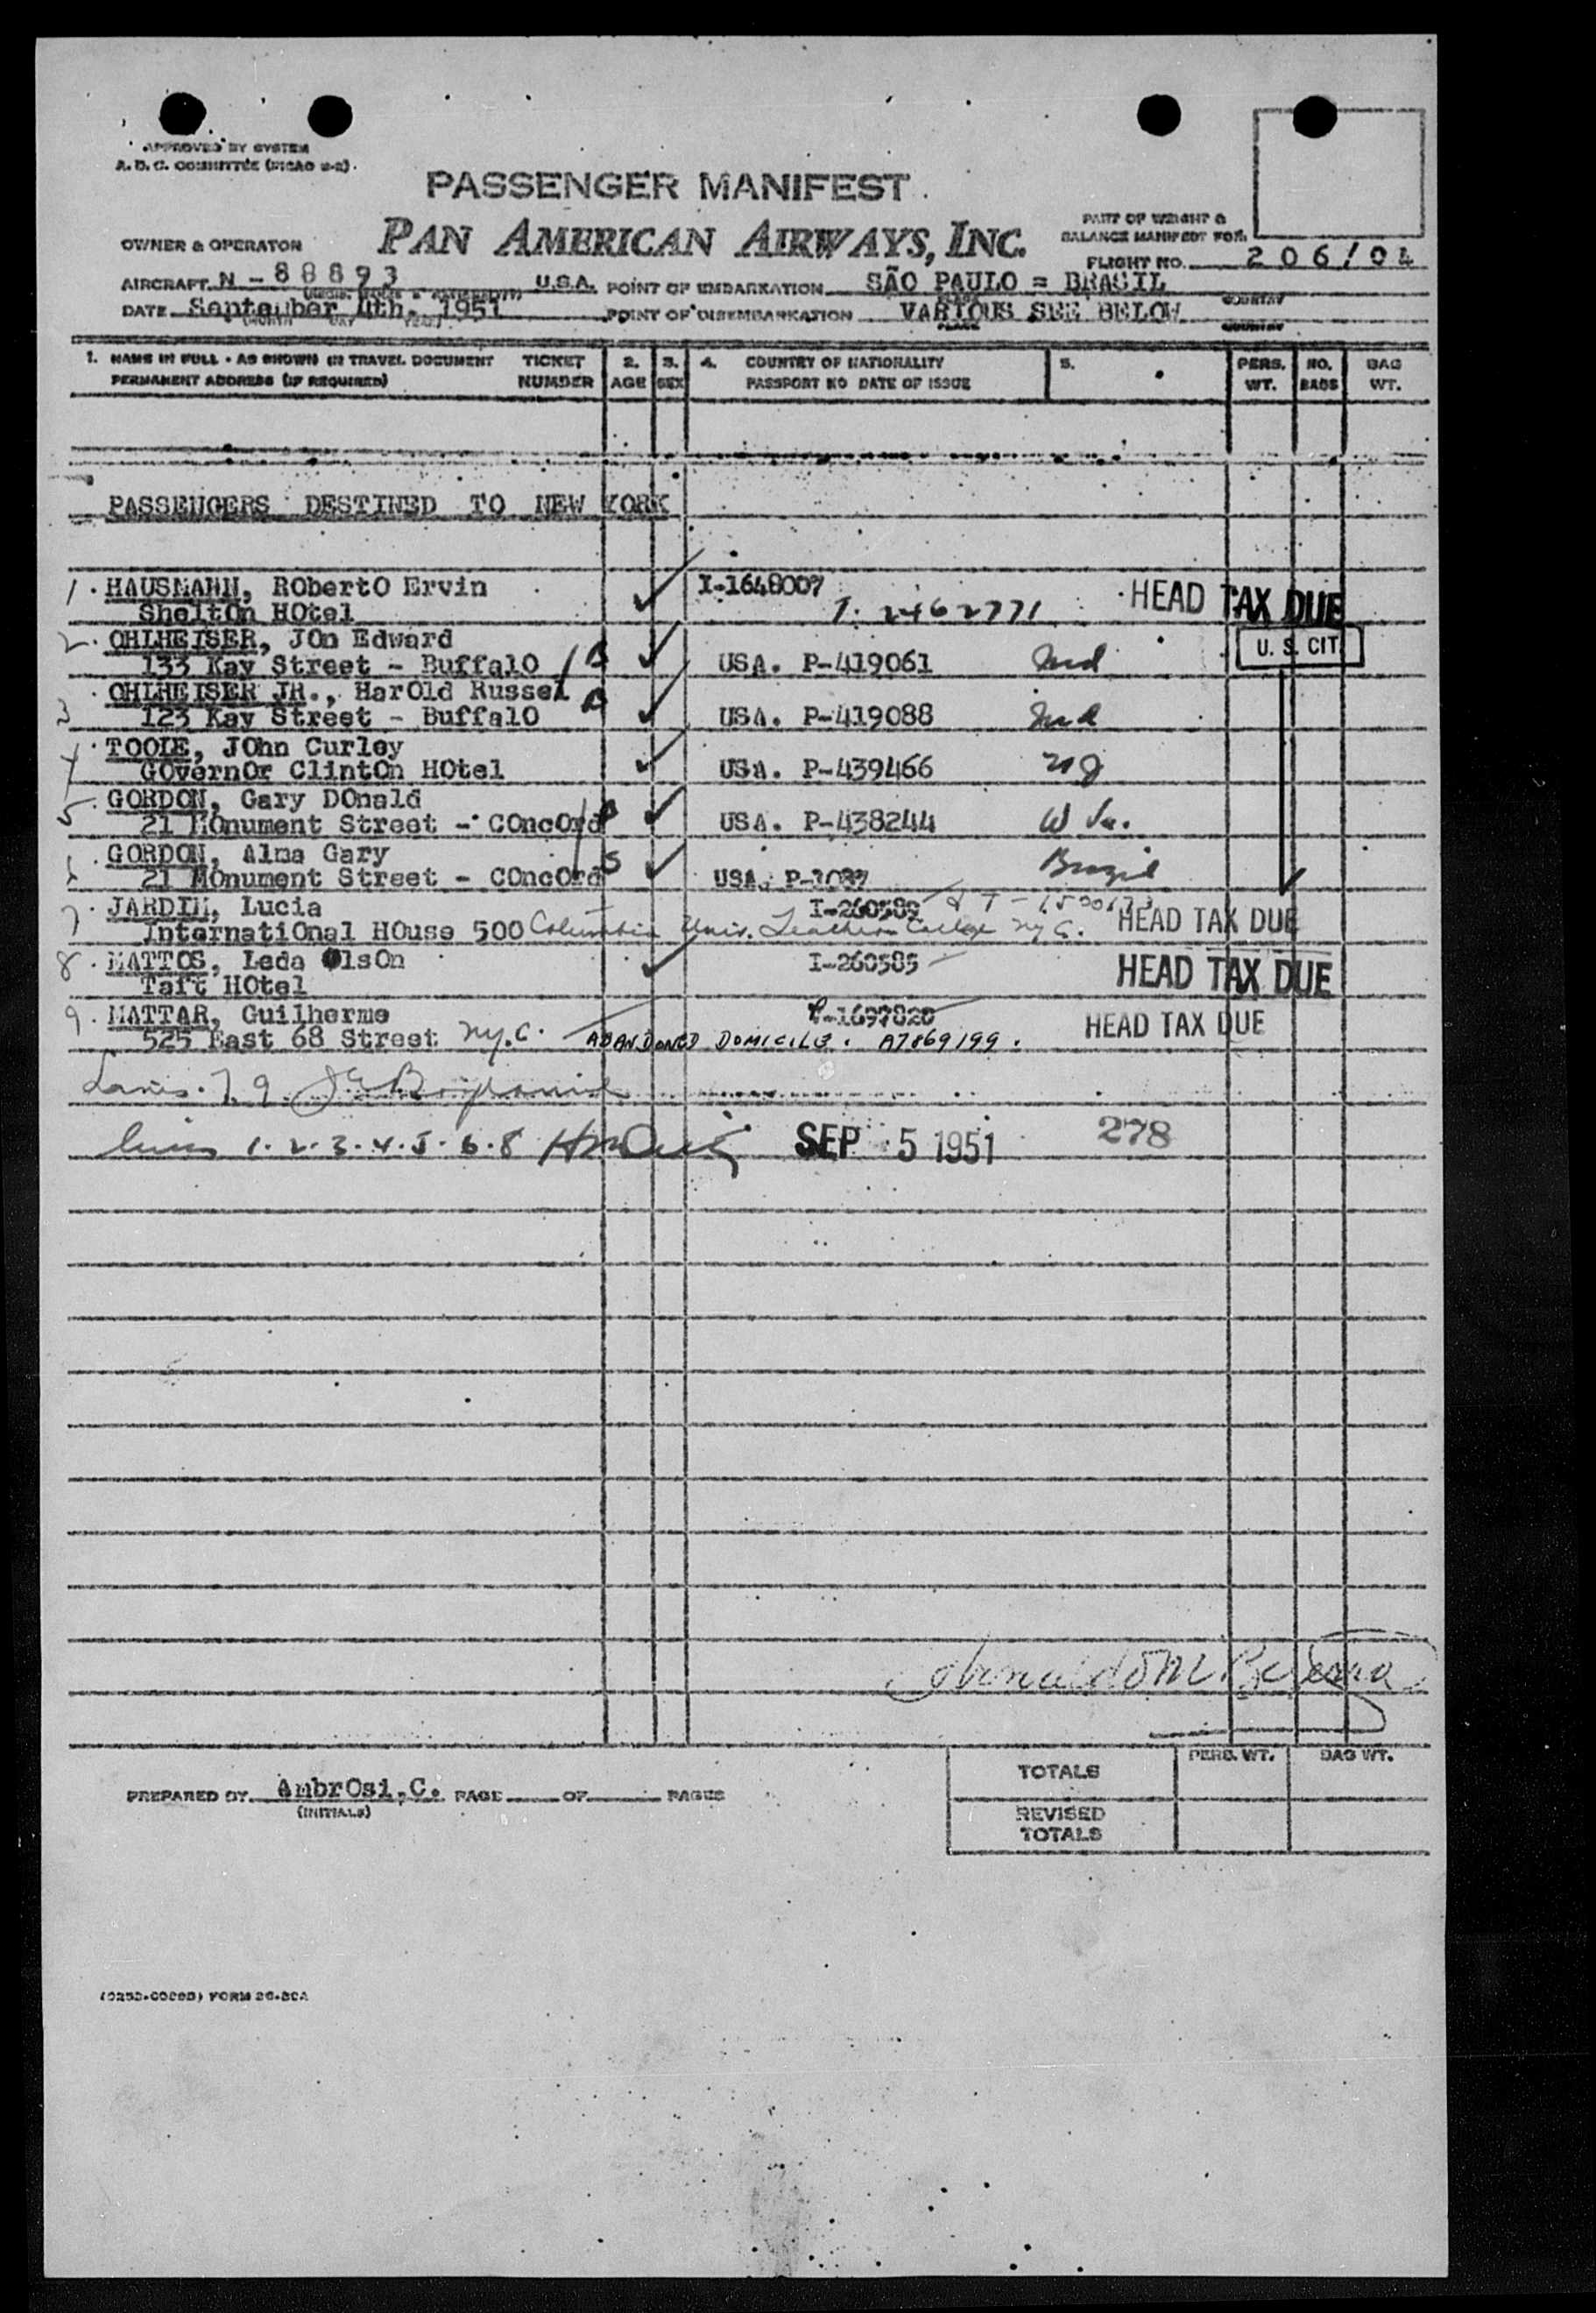 APPROVED BY SYSTEM
A.D.C. COMMITTEE (ICAO 2-2)
PASSENGER MANIFEST
PAN AMERICAN AIRWAYS, INC.
PART OF WEIGHT &
BALANCE MANIFEST FOR
OWNER & OPERATOR
FLIGHT NO. 206/04
AIRCRAFT N-88893 U.S.A. POINT OF EMBARKATION SÃO PAULO = BRASIL
DATE September 4th. 1951 POINT OF DISEMBARKATION VARIOUS SEE BELOW
(MONTH DAY YEAR) PLACE COUNTRY
1. NAME IN FULL - AS SHOWN IN TRAVEL DOCUMENT TICKET 2. 3. 4. COUNTRY OF NATIONALITY 5. PERS. NO. BAG
PERMANENT ADDRESS (IF REQUIRED) NUMBER AGE SEX PASSPORT NO DATE OF ISSUE WT. BAGS WT.
PASSENGERS DESTINED TO NEW YORK
1. HAUSMANN, RObertO Ervin I-1648007 HEAD TAX DUE
SheltOn HOtel 2462771
2. OHLHEISER, JOn Edward U.S. CIT
133 Kay Street - BuffalO USA. P-419061 Ind
3. OHLHEISER JR., HarOld Russel
123 Kay Street - BuffalO USA. P-419088 Ind
4. TOOLE, JOhn Curley
GOvernOr ClintOn HOtel USA. P-439466 NJ
5. GORDON, Gary DOnald
21 MOnument Street - COncOrd USA. P-438244 W Va.
6. GORDON, Alma Gary Brazil
21 MOnument Street - COncOrd S USA. P-1087
7. JARDIM, Lucia I-260589 HEAD TAX DUE
InternatiOnal HOuse 500 Columbia Univ. Teachers College N.Y.C.
8. MATTOS, Leda OlsOn I-260585 HEAD TAX DUE
Taft HOtel
9. MATTAR, Guilherme I-1697820 HEAD TAX DUE
525 East 68 Street N.Y.C. ABANDONED DOMICILE. A7869199.
Lines 7.9.
Lines 1.2.3.4.5.6.8 SEP 5 1951 278
PERS. WT. BAG WT.
TOTALS
PREPARED BY AmbrOsi,C. PAGE OF PAGES
(INITIALS)
REVISED
TOTALS
FORM 26-80A